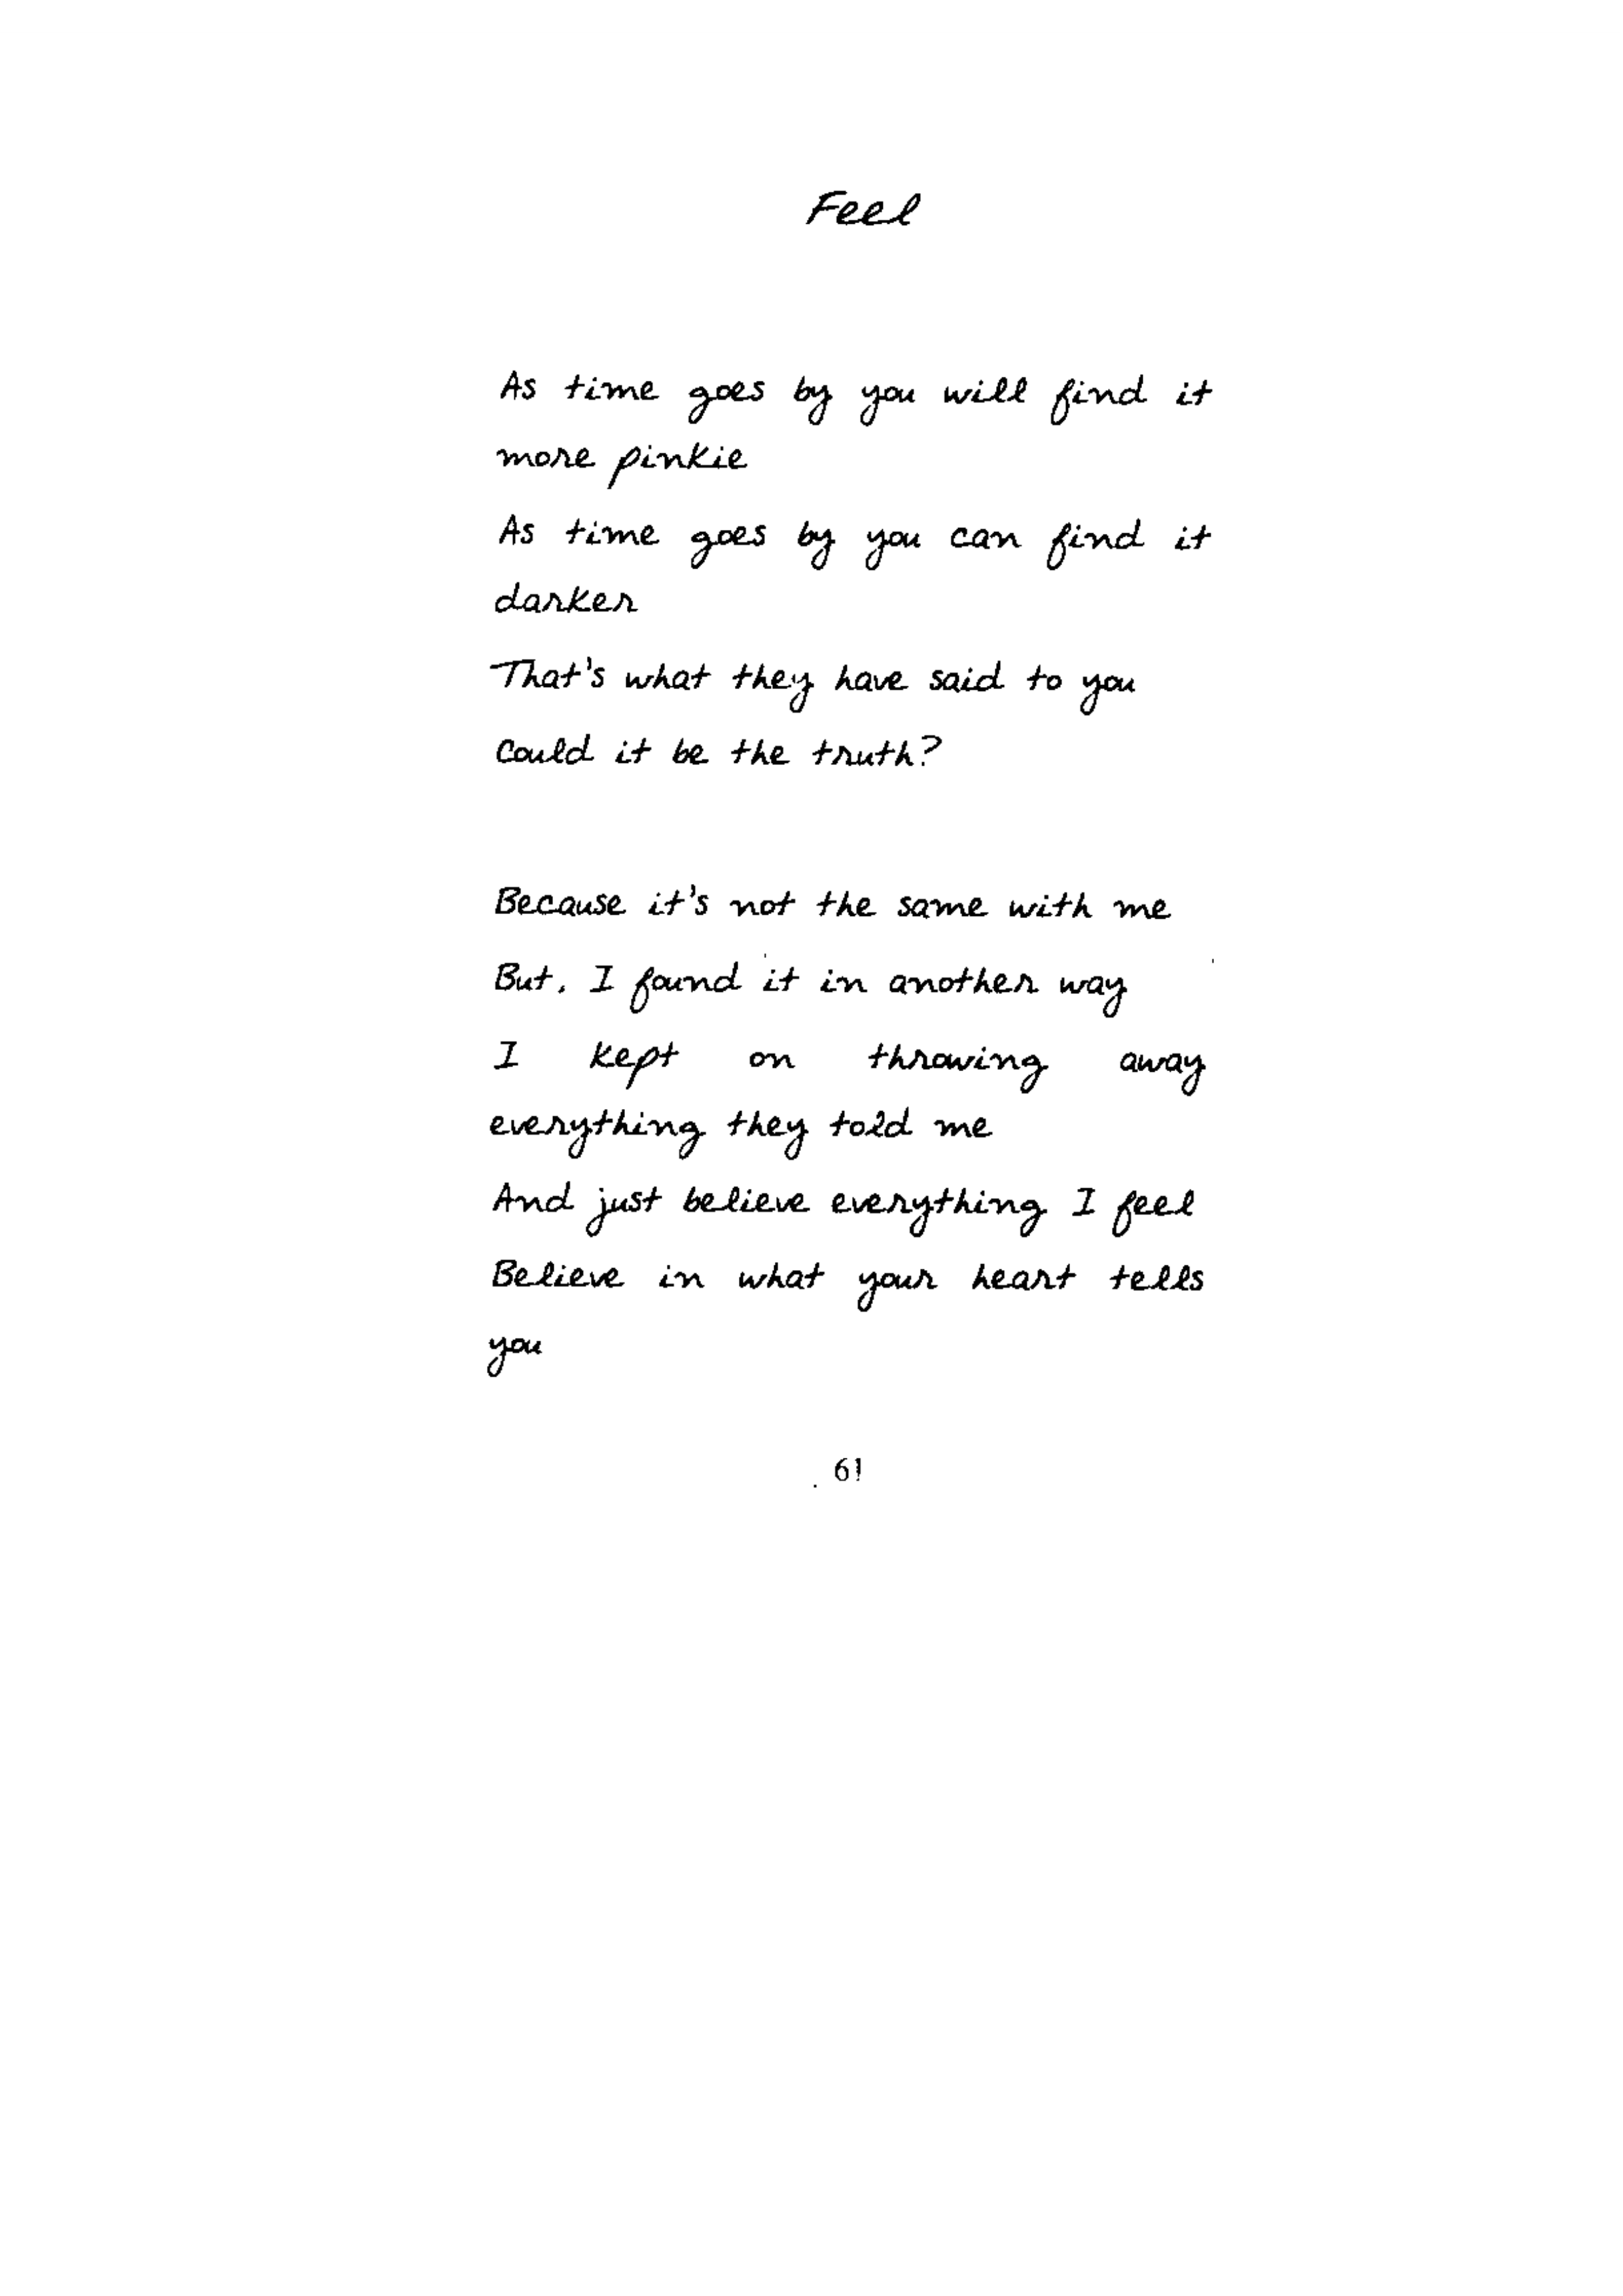 Feel
As time goes by you will find it
more pinkie
As time goes by you can find it
darker
That's what they have said to you
Could it be the truth?
Because it's not the same with me
But, I found it in another way
I kept on throwing away
everything they told me
And just believe everything I feel
Believe in what your heart tells
you
61